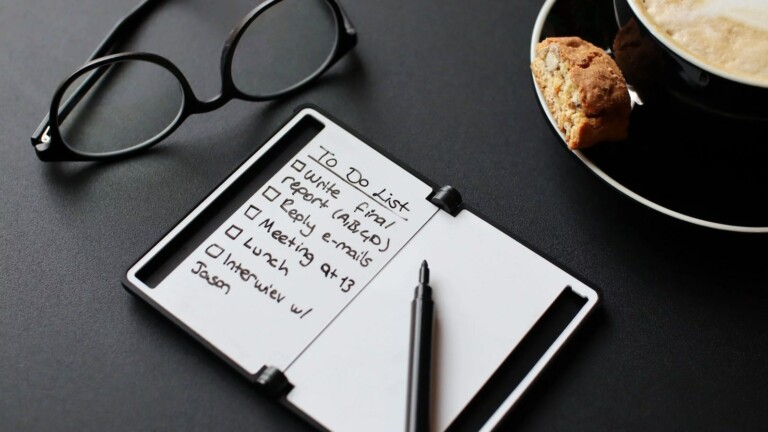 To Do List
☐ Write final
report (A,B,C,D)
☐ Reply e-mails
☐ Meeting at 13
☐ Lunch
☐ Interview w/
Jason